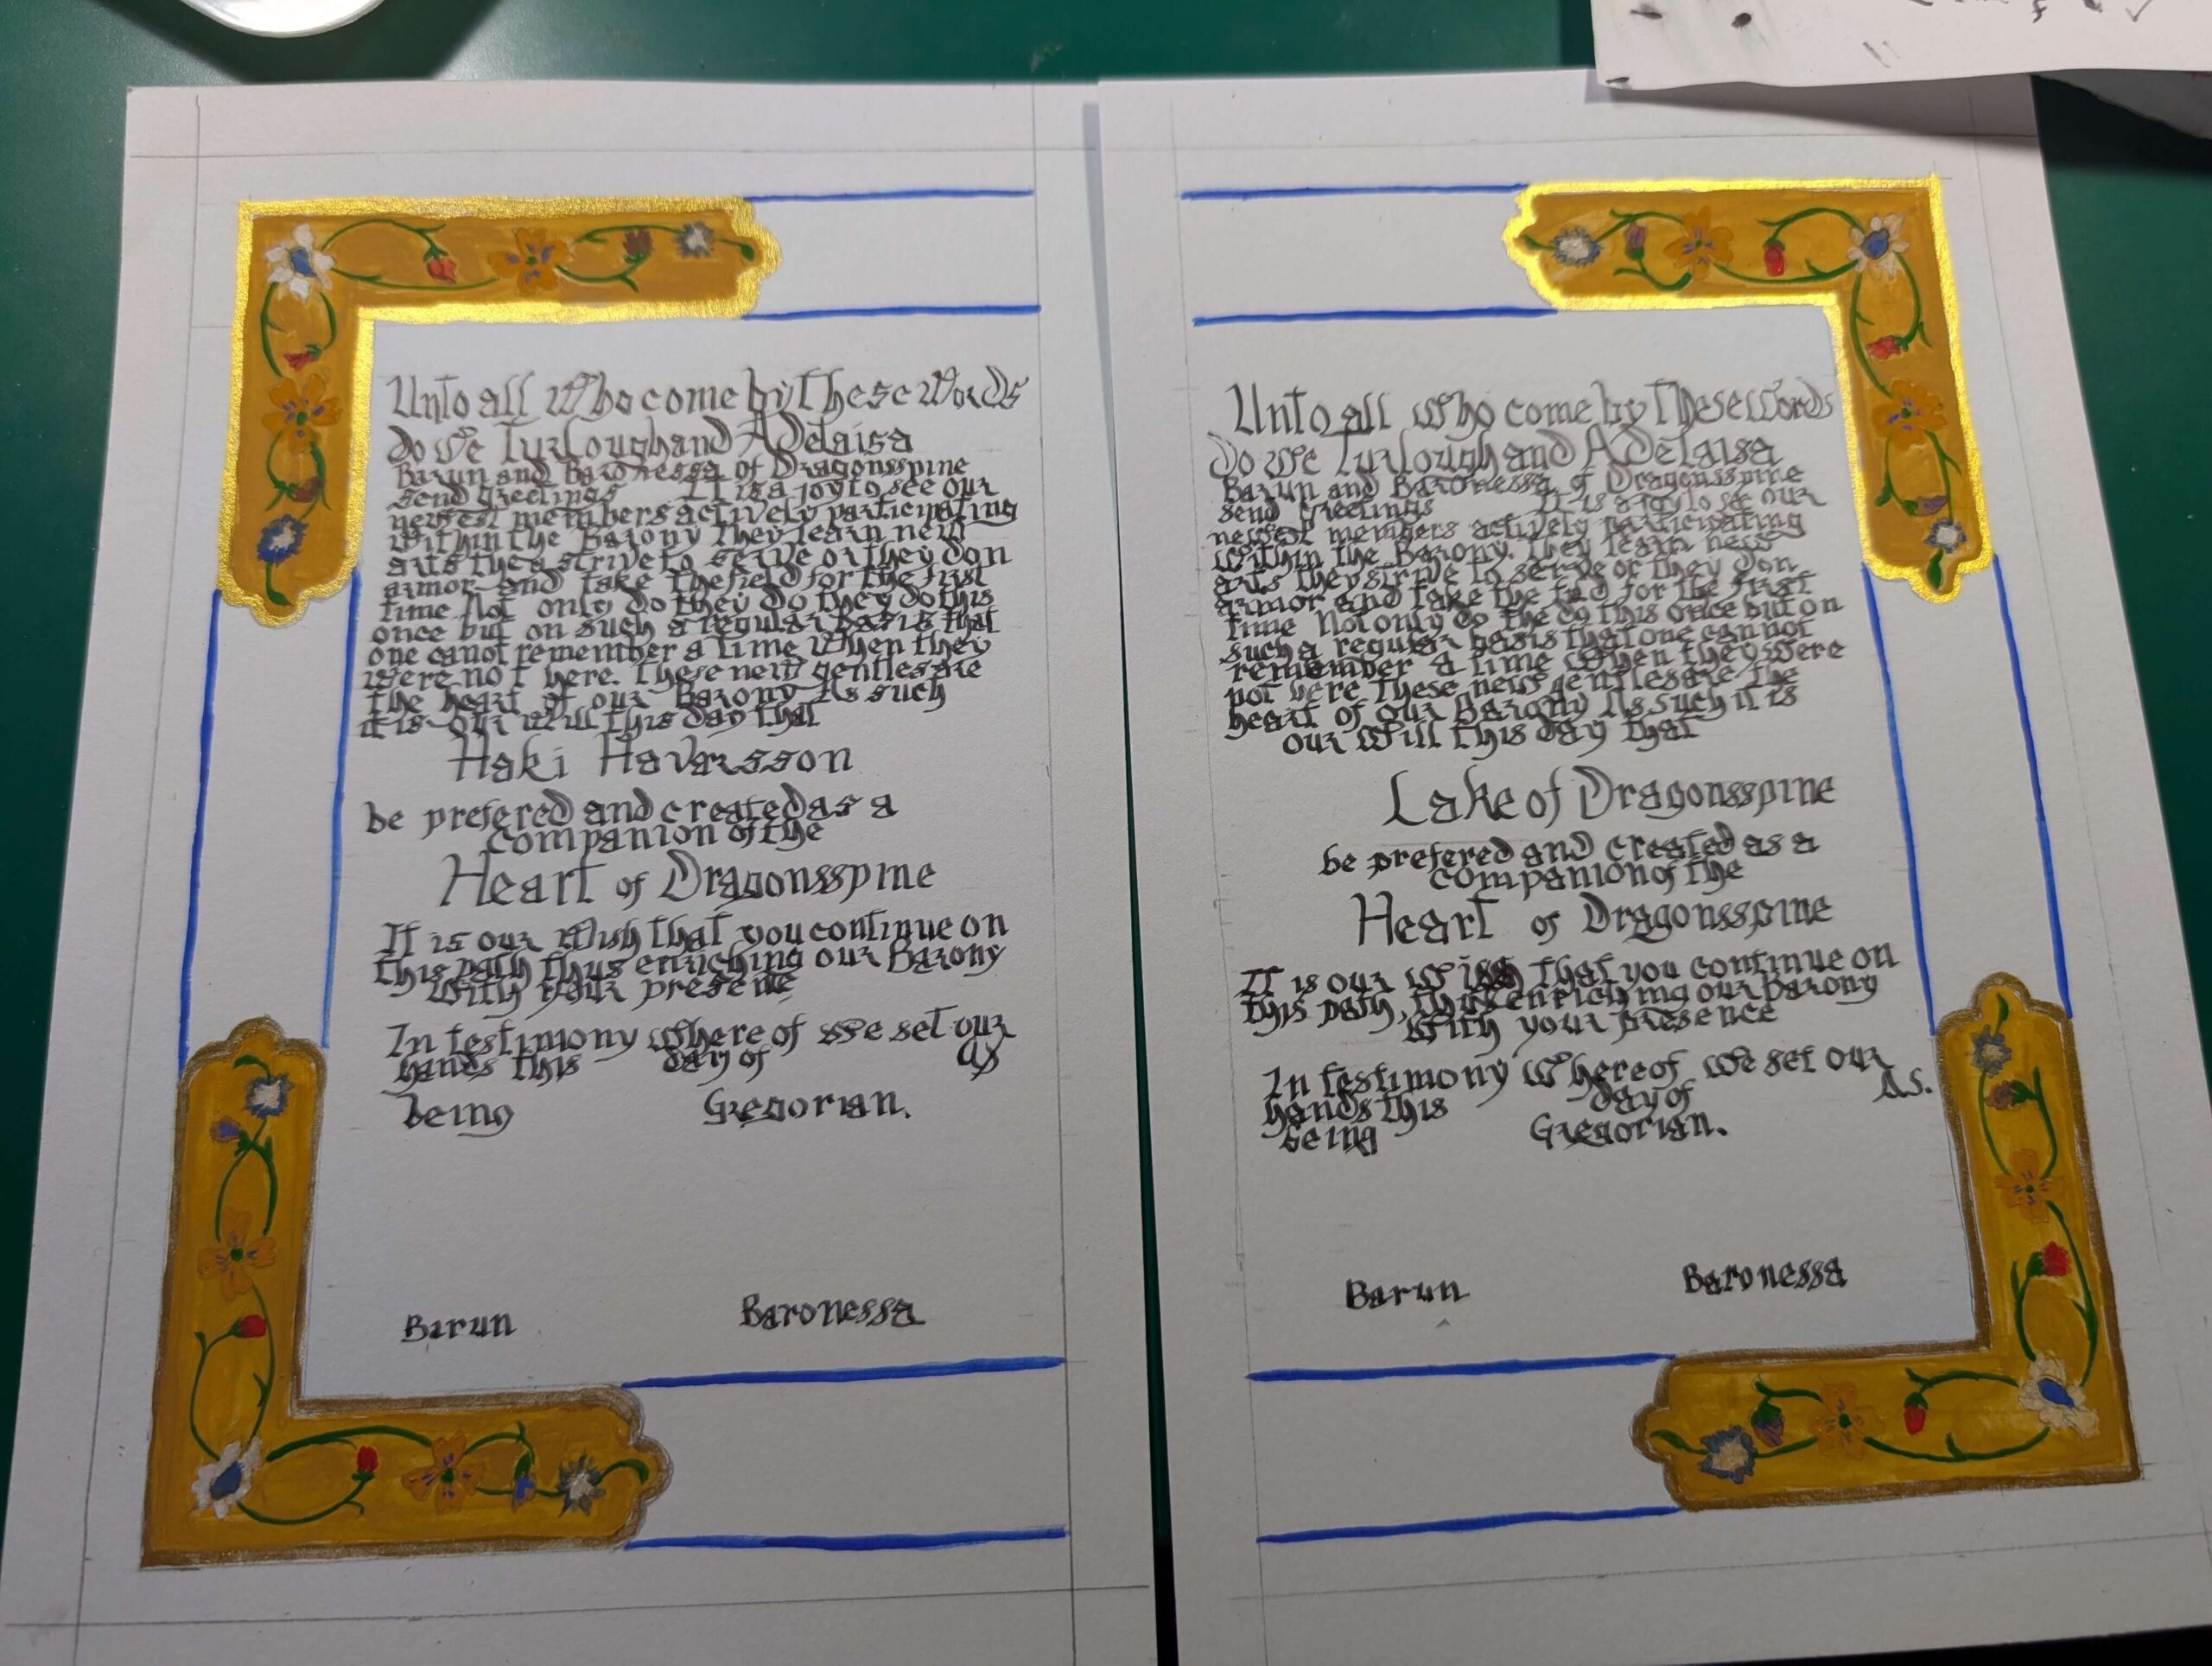 Unto all Who come by These Words
do we Turlough and Adelaisa
Barun and Baronessa of Dragonsspine
send greetings It is a joy to see our
newest members actively participating
within the Barony They learn new
arts they strive to serve or they don
armor and take the field for the first
time Not only do they do they do this
once but on such a regular basis that
one canot remember a time When they
were not here. These new gentles are
the heart of our Barony As such
it is our will this day that
Haki Havarsson
be prefered and created as a
companion of the
Heart of Dragonsspine
It is our Wish that you continue on
this path thus enriching our Barony
with your presence
In testimony Where of we set our
hands this day of AS
being Gregorian.
Barun Baronessa
Unto all who come by These Words
do we Turlough and Adelaisa
Barun and Baronessa of Dragonsspine
send Greetings It is a joy to see our
newest members actively participating
Within the Barony. They learn new
arts they strive to serve or they don
armor and take the field for the first
time Not only do the do this once but on
such a regular basis that one cannot
remember a time When they were
not here These new gentles are the
heart of our Barony As such it is
our Will this day that
Lake of Dragonsspine
be prefered and created as a
companion of the
Heart of Dragonsspine
It is our Wish that you continue on
this path, thus enriching our Barony
With your presence
In testimony Whereof We set our
hands this day of A.S.
being Gregorian.
Barun Baronessa